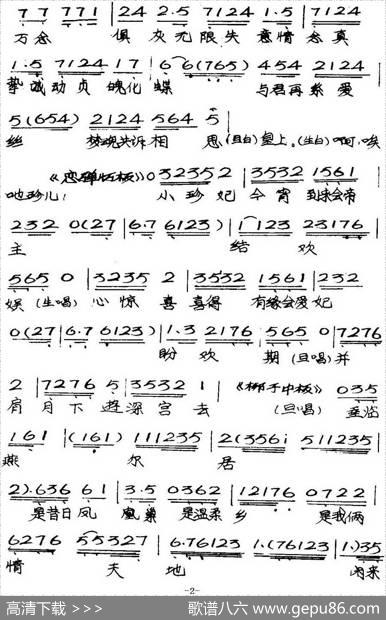 7 7 7 7 1 | 2 4 2·5 7 1 2 4 1·5 | 7 1 2 4
万念 俱 灰无限失 意情念真
1·5 7 1 2 4 1 7 | 6 6 (7 6 5) 4 5 4 2 1 2 4
挚 诚动贞 魄化蝶 与君再系爱
5 (6 5 4) 2 1 2 4 5 6 4 5 |
丝 梦魂共诉相 思 (旦白)皇上。(生白)啊,唉
0 3 2 3 5 2 | 3 5 3 2 1 5 6 1 |
吔珍儿! 小珍妃 今宵 到来会帝
2 3 2 0 (2 7 | 6·7 6 1 2 3) | 1 1 2 3 2 3 1 7 6 |
主 结欢
5 6 5 0 | 3 2 3 5 2 | 3 5 3 2 1 5 6 1 | 2 3 2
娱 (生唱) 心惊 喜 喜得 有缘会爱妃
0 (2 7 | 6·7 6 1 2 3) | 1·3 2 1 7 6 | 5 6 5 0 | 7 2 7 6
盼欢 期 (旦唱)并
2 | 7 2 7 6 5 | 3 5 3 2 1 | 《梆子中板》 0 3 5
肩 月下 游深宫 去 (旦唱) 重临
1 6 1 | (1 6 1) 1 1 1 2 3 5 | 2 (3 5 6 i 5 1 1 2 3 5 |
燕 尔 居
2 ) · 6 3 6 6 1 | 3·5 0 3 6 2 | 1 2 1 7 6 0 7 2 2 |
是昔日凤 凰巢 是温柔乡 是我俩
6 2 7 6 5 5 3 3 2 7 | 6·7 6 1 2 3 1·(7 6 1 2 3 | 1·) 3 5
情 天地 闲来
-2-
高清下载 >>> 歌谱八六 www.gepu86.com